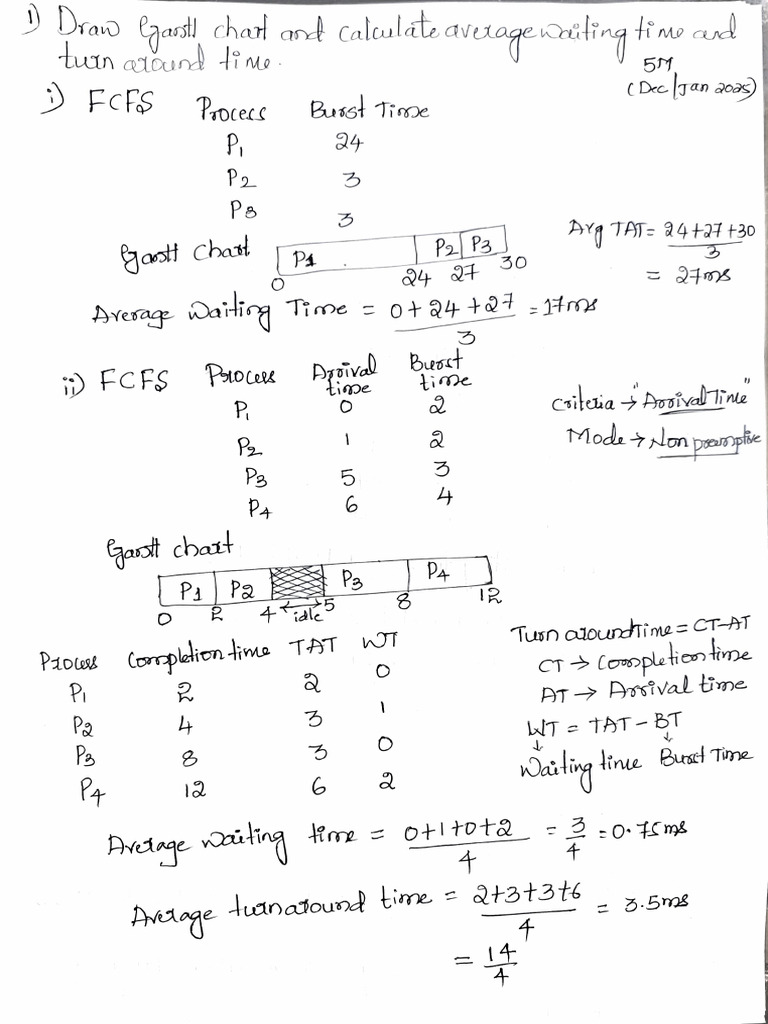 1) Draw Gantt chart and calculate average waiting time and
turn around time.
5M
(Dec/Jan 2025)
i) FCFS Process Burst Time
P1 24
P2 3
P3 3
Gantt Chart P1 P2 P3
0 24 27 30
Avg TAT = 24+27+30
3
= 27ms
Average Waiting Time = 0+24+27 = 17ms
3
ii) FCFS Process Arrival time Burst time
P1 0 2
P2 1 2
P3 5 3
P4 6 4
Criteria → "Arrival Time"
Mode → Non preemptive
Gantt chart
P1 P2 P3 P4
0 2 4 ←idle→ 5 8 12
Process Completion time TAT WT
P1 2 2 0
P2 4 3 1
P3 8 3 0
P4 12 6 2
Turn around time = CT-AT
CT → Completion time
AT → Arrival time
WT = TAT - BT
↓ ↓
Waiting time Burst Time
Average waiting time = 0+1+0+2 = 3 = 0.75ms
4 4
Average turnaround time = 2+3+3+6 = 3.5ms
4
= 14
4